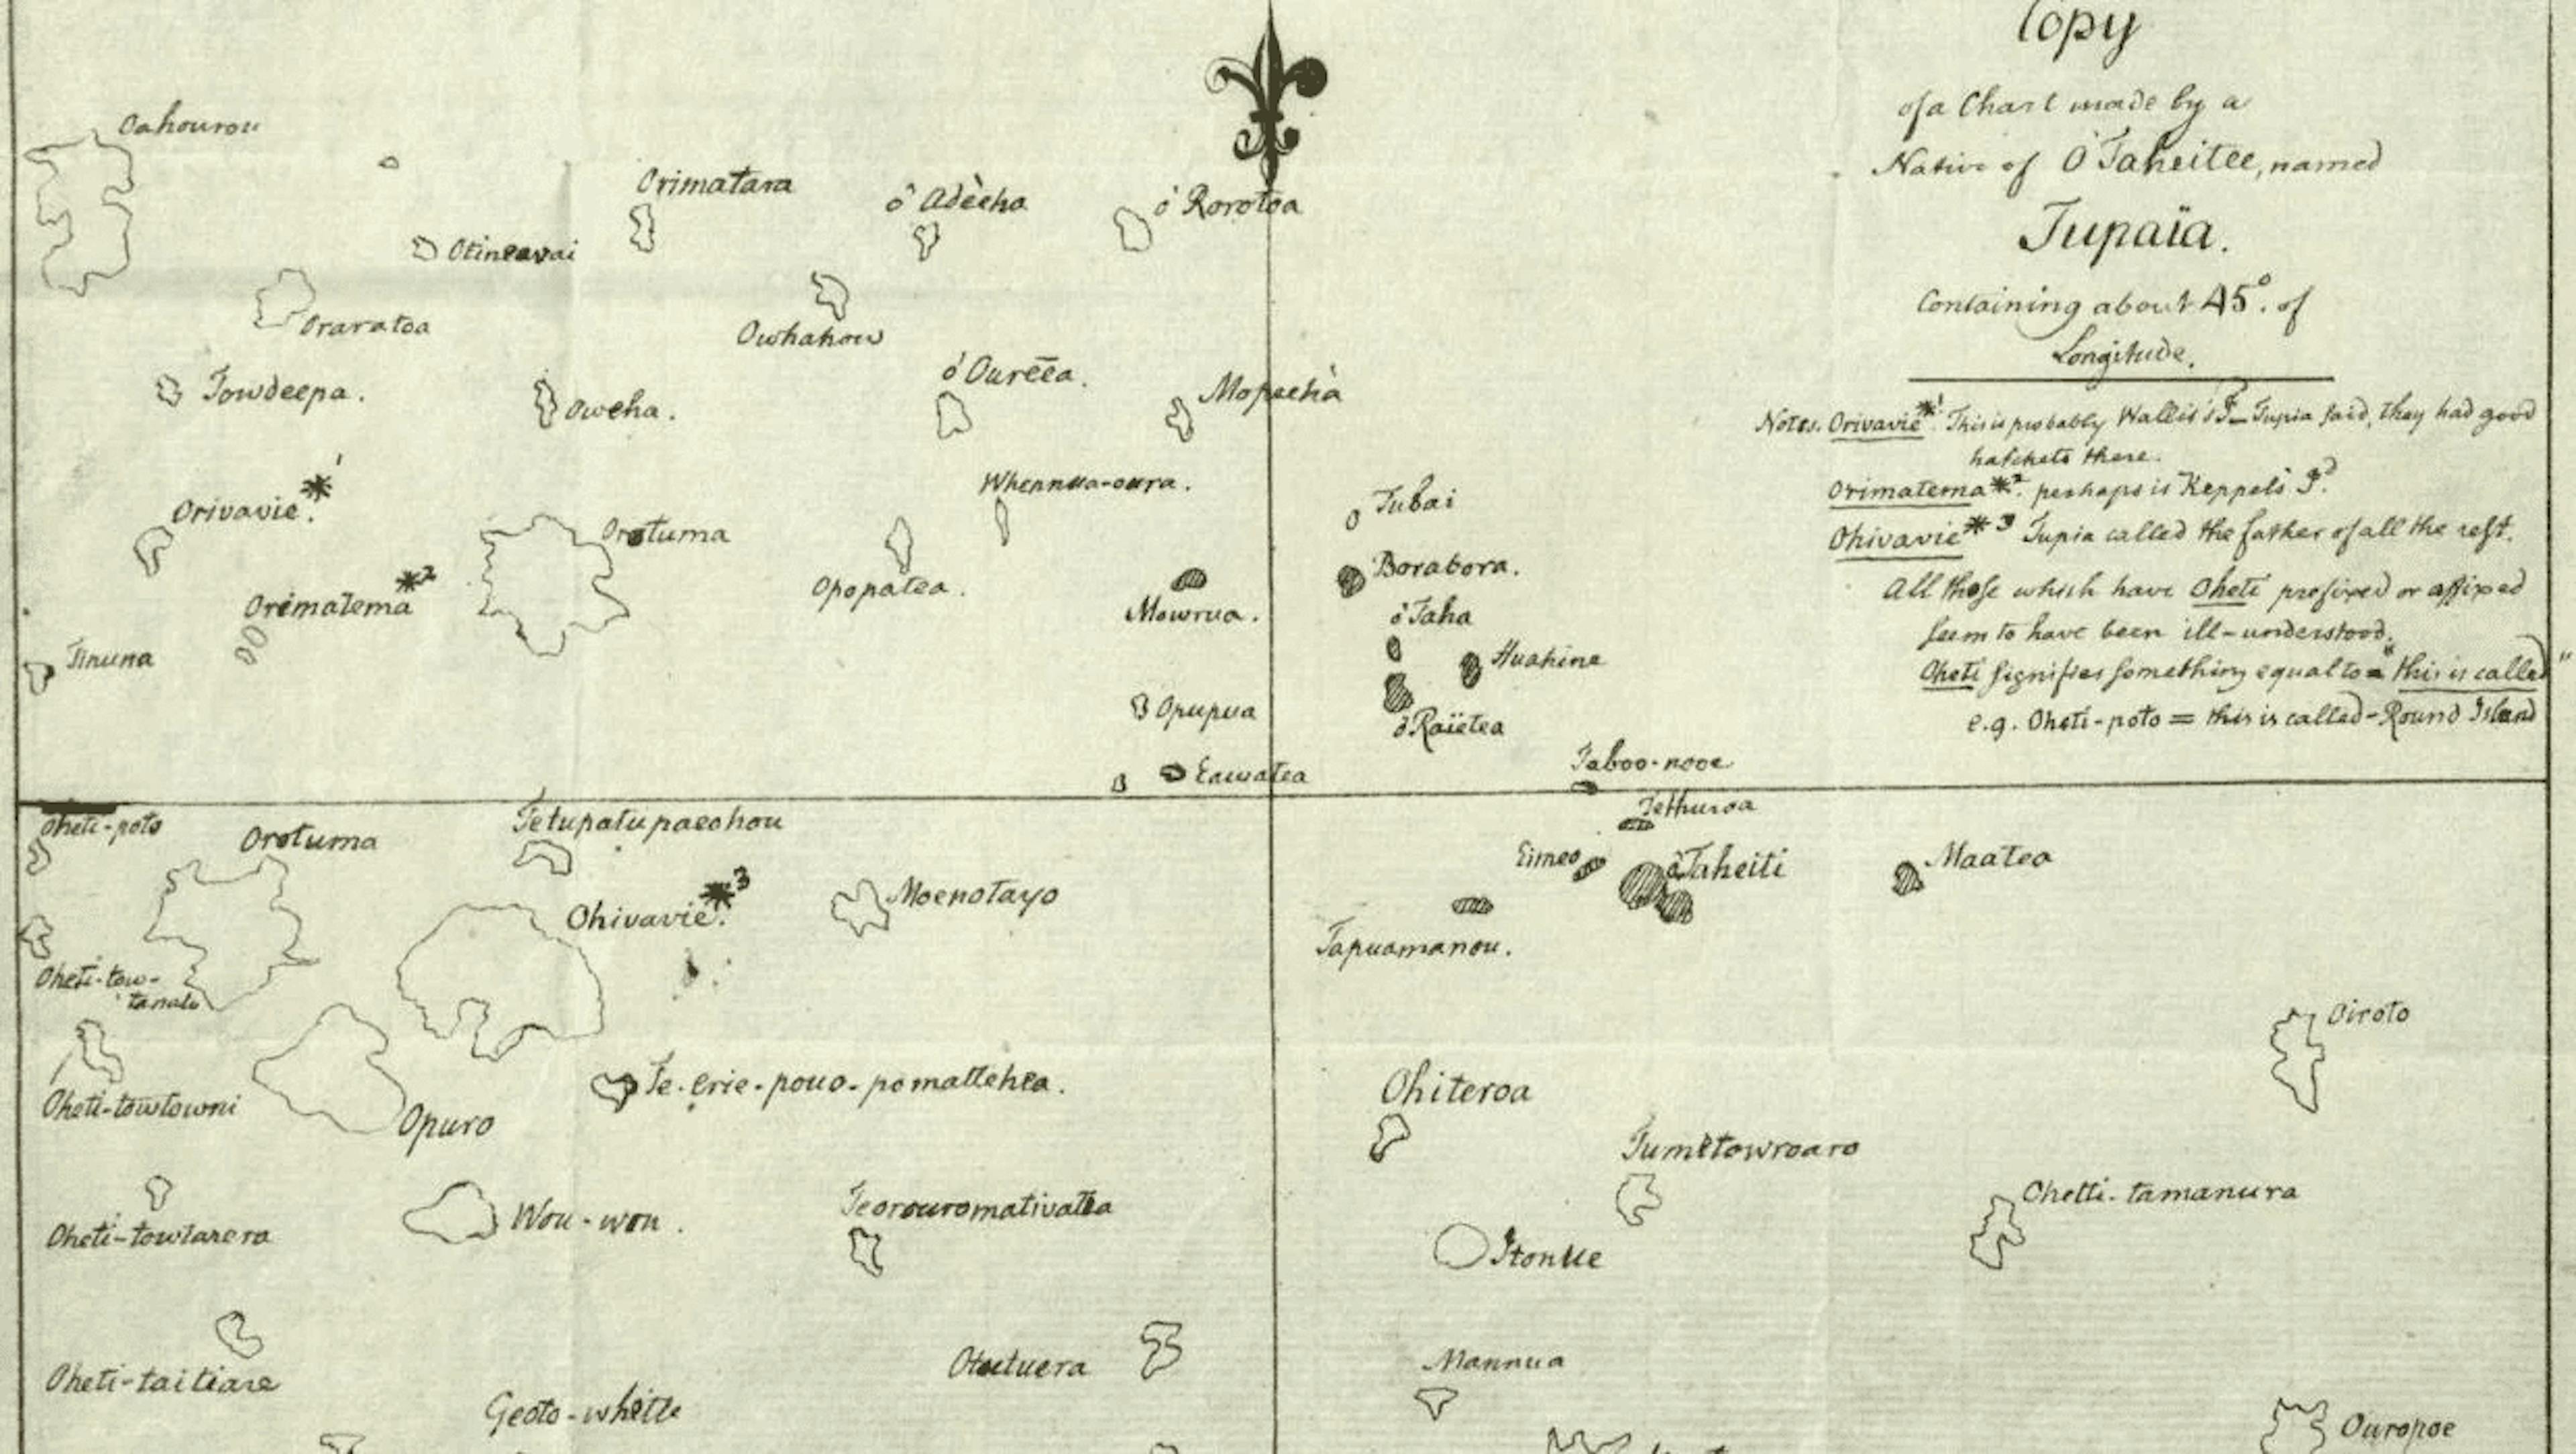 Copy
of a Chart made by a
Native of O'Taheitee, named
Tupaïa.
Containing about 45°. of
Longitude.
Notes. Orivavie*1. This is probably Wallis's I_ Tupia said, they had good
hatchets there.
Orimatema*2. perhaps is Keppels Id.
Ohivavie*3 Tupia called the father of all the rest.
All those which have Oheti prefixed or affixed
seem to have been ill-understood.
Oheti signifies something equal to = "this is called"
e.g. Oheti-poto = this is called-Round Island
Oahourou
Orimatara
ô Adèeha
ó Rorotoa
Otineavai
Oraratoa
Owhahow
Towdeepa.
Oweha.
ó Oureēa.
Mopeehà
Whennua-oura.
Orivavie.*1
Orotuma
Opopatea.
Tubai
Borabora.
Orimatema*2
Mowrua.
ó Taha
Huahine
Tinuna
Opupua
ó Raïetea
Eawatea
Taboo-nooe
Oheti-poto
Orotuma
Tetupatupaeohou
Tethuroa
Eimeo
ò Taheiti
Maatea
Ohivavie.*3
Moenotayo
Tapuamanou.
Oheti-tow-
Oiroto
Oheti-towtowni
Opuro
Te-erie-pouo-pomattehea.
Ohiteroa
Tumitowroaro
Ohetti-tamanura
Oheti-towtarera
Wou-wou.
Teorouromativatea
Itonue
Oheti-taitiare
Geoto-whitte
Otutuera
Mannua
Ouropoe